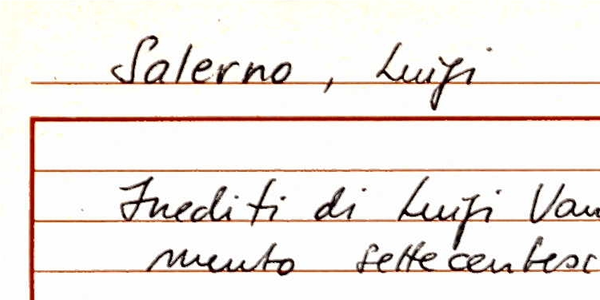 Salerno, Luigi
Inediti di Luigi Van
mento settecentesc